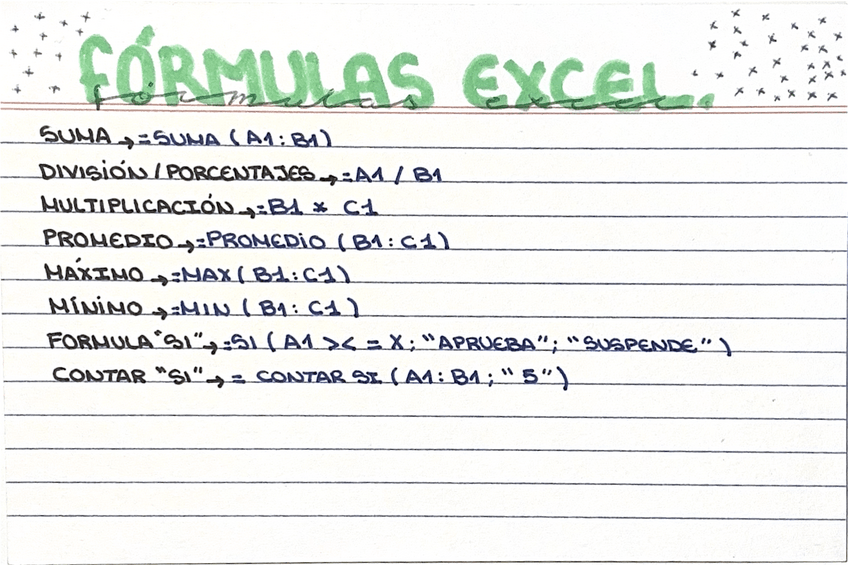 FÓRMULAS EXCEL
fórmulas excel.
SUMA → =SUMA (A1:B1)
DIVISIÓN/PORCENTAJES → =A1 / B1
MULTIPLICACIÓN → =B1 * C1
PROMEDIO → =PROMEDIO (B1:C1)
MÁXIMO → =MAX(B1:C1)
MÍNIMO → =MIN (B1:C1)
FORMULA "SI" → =SI (A1 >< = X; "APRUEBA"; "SUSPENDE")
CONTAR "SI" → = CONTAR SI (A1:B1; "5")